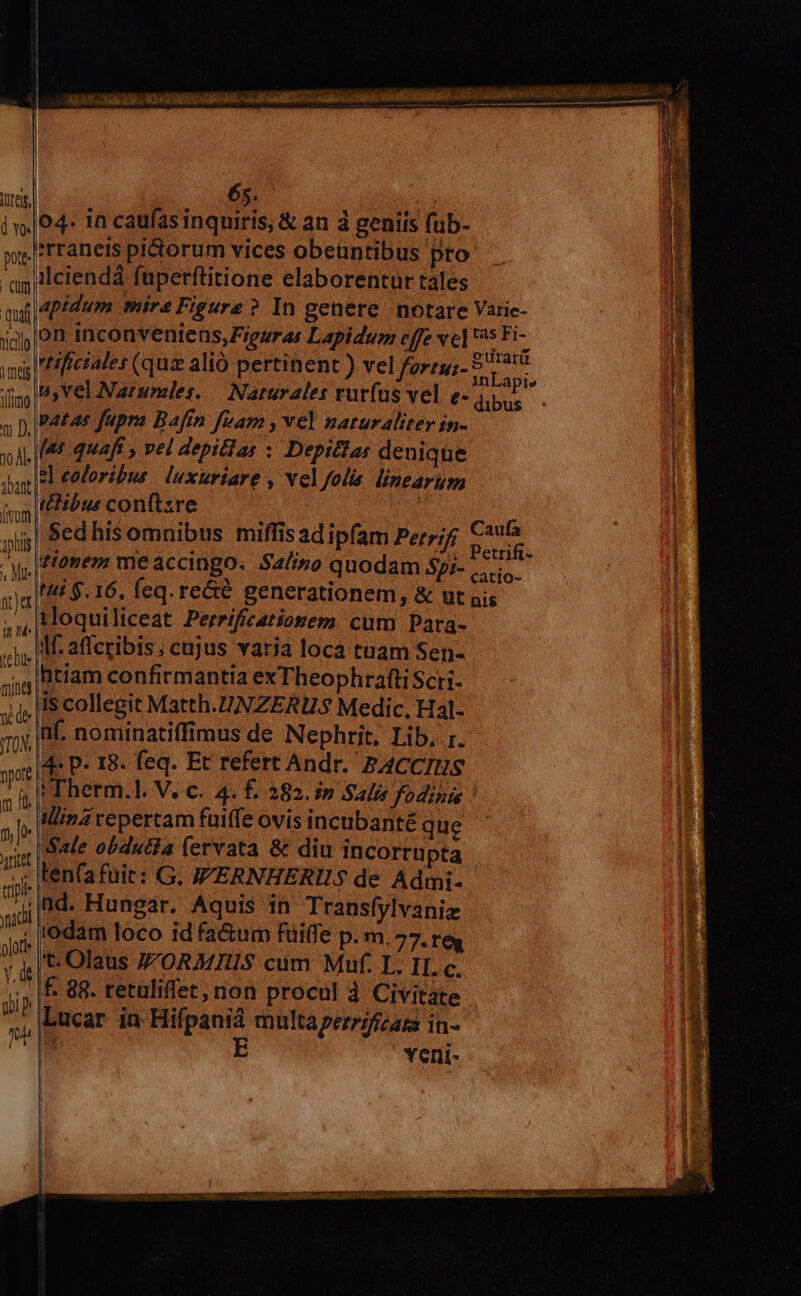 65.
04. in cauſas inquiris, & an à geniis ſub-
erraneis pictorum vices obeuntibus pro
alciendâ ſuperſtitione elaborentur tales
apidum miræ Figuræ? In genere notare
on inconveniens, Figuras Lapidum eſſe vel
rtificiales (quæ aliò pertinent) vel fortui-
, vel Naturales. Naturales rurſus vel e-
vatas ſupra Baſin ſuam, vel naturaliter in-
ſas quaſi, vel depictas: Depictas denique
el coloribus luxuriare, vel ſolis linearum
ictibus conſtare
Varie-
tas Fi-
gurarū
in Lapi-
dibus
Sed his omnibus miſſis ad ipſam Petrifi-
tionem me accingo. Salino quodam Spi-
tui §. 16. ſeq. rectè generationem, & ut
Cauſa
Petrifi-
catio-
nis
lloqui liceat Petrificationem cum Para-
lſ. aſſcribis, cujus varia loca tuam Sen-
ntiam confirmantia ex Theophraſti Scri-
is collegit Matth. UNZERUS Medic. Hal-
nſ. nominatiſſimus de Nephrit. Lib. 1.
4. p. 18. ſeq. Et refert Andr. BACCIUS
Therm. l. V. c. 4. f. 282. in Salis fodinis
llinā repertam fuiſſe ovis incubantē que
Sale obducta ſervata & diu incorrupta
tenſa fuit: G. WERNHERUS de Admi-
nd. Hungar. Aquis in Transſylvaniæ
odam loco id factum fuiſſe p. m. 77.
t. Olaus WORMIUS cum Muſ. L. II. c.
f. 88. retuliſſet, non procul à Civitate
Lucar in Hiſpaniâ multa petrificata in-
E
veni-